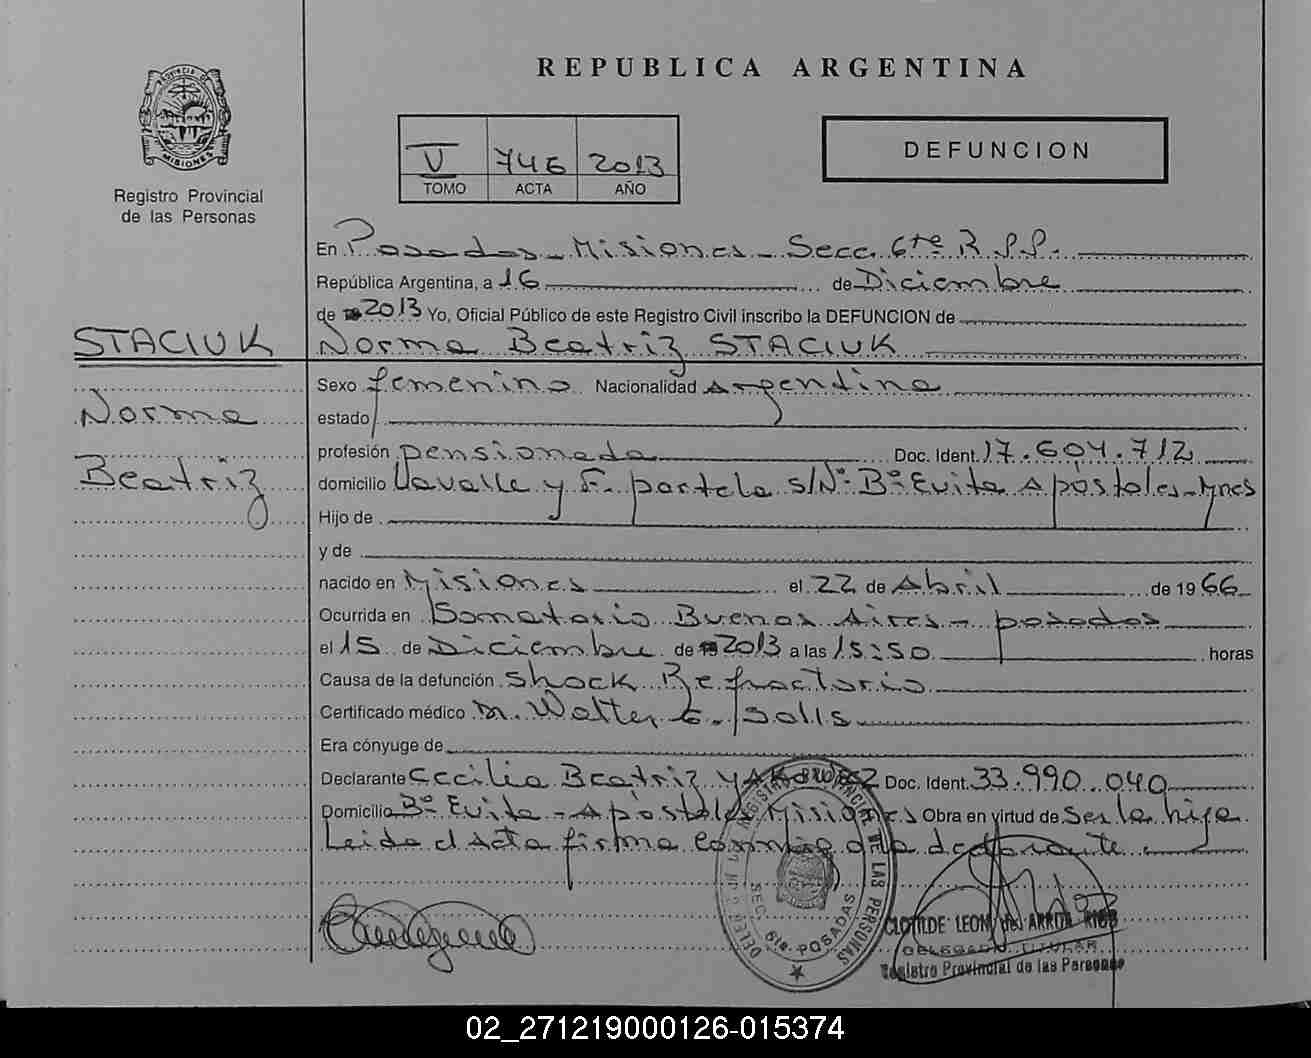 REPUBLICA ARGENTINA
PROVINCIA DE
MISIONES
Registro Provincial
de las Personas
V 746 2013
TOMO ACTA AÑO
DEFUNCION
En Posadas - Misiones - Secc. 6ta R.P.P.
República Argentina, a 16 de Diciembre
de 2013 Yo, Oficial Público de este Registro Civil inscribo la DEFUNCION de
STACIUK
Norma Beatriz STACIUK
Sexo femenino Nacionalidad Argentina
Norma
estado
profesión pensionada Doc. Ident. 17.604.712
Beatriz
domicilio Lavalle y F. portela s/Nº Bº Evita Apóstoles - Mnes
Hijo de
y de
nacido en Misiones el 22 de Abril de 1966
Ocurrida en Sanatorio Buenos Aires - posadas
el 15 de Diciembre de 2013 a las 15:50 horas
Causa de la defunción shock Refractario
Certificado médico M. Walter G. Solis
Era cónyuge de
Declarante Cecilia Beatriz Doc. Ident. 33.990.040
Domicilio Bº Evita - Apóstoles Misiones Obra en virtud de Ser la hija
Leida el Acta firma conmigo la declarante
REGISTRO PROVINCIAL DE LAS PERSONAS
SEC. 6ta. POSADAS
CLOTILDE LEON de ARRUA
DELEGADA TITULAR
Registro Provincial de las Personas
02_271219000126-015374